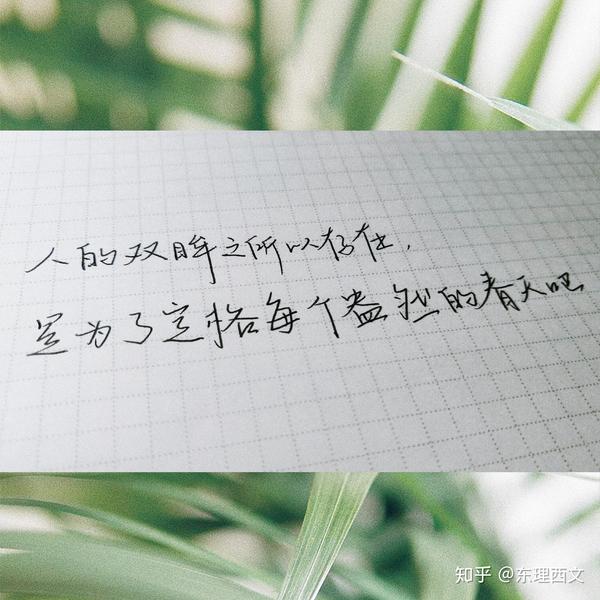 人的双眸之所以存在,
是为了定格每个盎然的春天吧
知乎 @东理西文